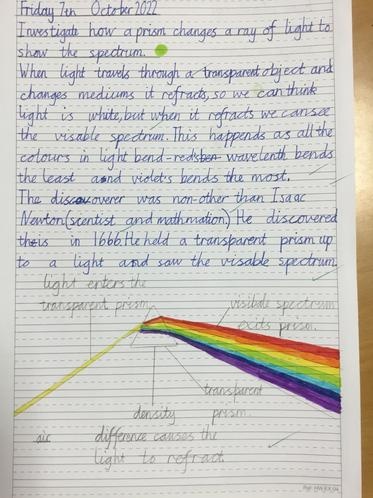 Friday 7th October 2022
Investigate how a prism changes a ray of light to
show the spectrum.
When light travels through a transparent object and
changes mediums it refracts, so we can think
light is white, but when it refracts we can see
the visable spectrum. This happends as all the
colours in light bend - reds wavelenth bends
the least and violets bends the most.
The discoverer was non-other than Isaac
Newton (scentist and mathmation) He discovered
this in 1666. He held a transparent prism up
to a light and saw the visable spectrum
light enters the
transparent prism.
visible spectrum
exits prism.
transparent
prism.
density
difference causes the
light to refract.
air